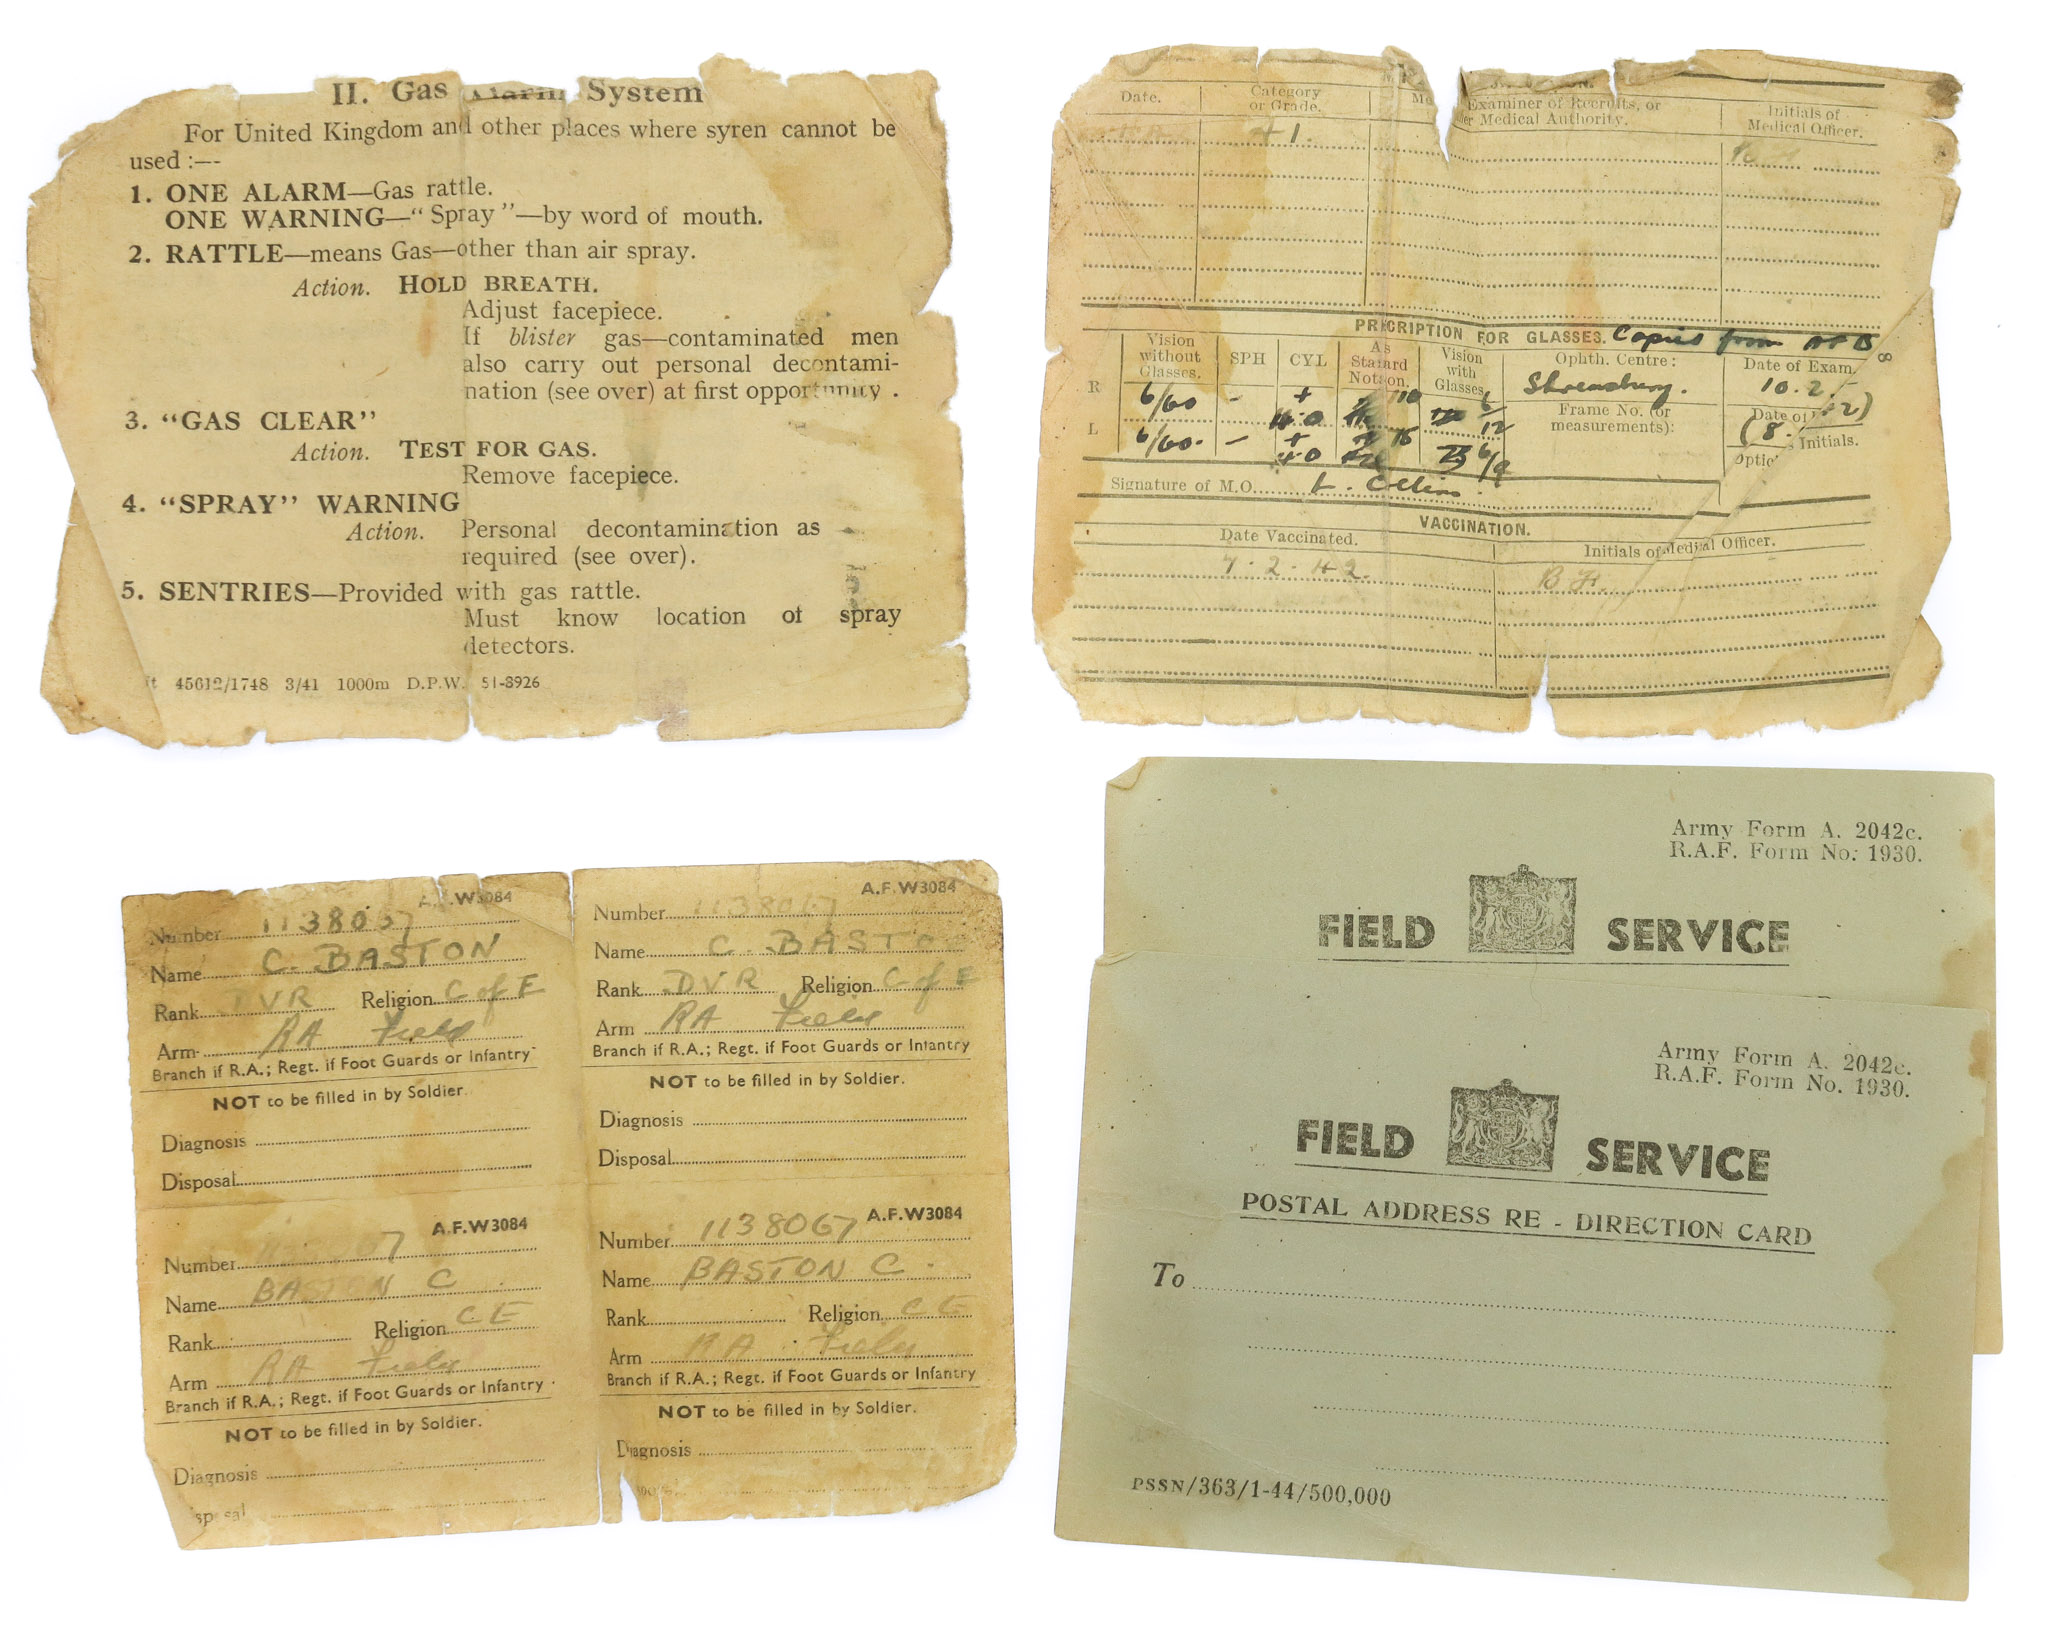 II. Gas Alarm System
For United Kingdom and other places where syren cannot be
used :—-
1. ONE ALARM—Gas rattle.
ONE WARNING—“ Spray ”—by word of mouth.
2. RATTLE—means Gas—other than air spray.
Action. HOLD BREATH.
Adjust facepiece.
If blister gas—contaminated men
also carry out personal decontami-
nation (see over) at first opportunity .
3. “GAS CLEAR”
Action. TEST FOR GAS.
Remove facepiece.
4. “SPRAY” WARNING
Action. Personal decontamination as
required (see over).
5. SENTRIES—Provided with gas rattle.
Must know location of spray
detectors.
45612/1748 3/41 1000m D.P.W. 51-8926
Date. Category or Grade. Examiner of Recruits, or Medical Authority. Initials of Medical Officer.
PRESCRIPTION FOR GLASSES. Copied from
Vision without Glasses. SPH CYL As Standard Notson. Vision with Glasses Ophth. Centre: Date of Exam.
Shrewsbury. 10.2.
R 6/60 - + 6/12
Frame No. (or measurements): Date of
L 6/60. - + 6/9
Initials.
Signature of M.O. Collins.
VACCINATION.
Date Vaccinated. Initials of Medical Officer.
7.2.42.
A.F.W3084
Number 1138067
Name C. BASTON
Rank DVR Religion C of E
Arm RA Field
Branch if R.A.; Regt. if Foot Guards or Infantry
NOT to be filled in by Soldier.
Diagnosis
Disposal
A.F.W3084
Number 1138067
Name C. BASTON
Rank DVR Religion C of E
Arm RA Field
Branch if R.A.; Regt. if Foot Guards or Infantry
NOT to be filled in by Soldier.
Diagnosis
Disposal
A.F.W3084
Number
Name BASTON C
Rank Religion CE
Arm RA Field
Branch if R.A.; Regt. if Foot Guards or Infantry
NOT to be filled in by Soldier.
Diagnosis
A.F.W3084
Number 1138067
Name BASTON C.
Rank Religion CE
Arm RA Field
Branch if R.A.; Regt. if Foot Guards or Infantry
NOT to be filled in by Soldier.
Diagnosis
Army Form A. 2042c.
R.A.F. Form No. 1930.
FIELD SERVICE
Army Form A. 2042c.
R.A.F. Form No. 1930.
FIELD SERVICE
POSTAL ADDRESS RE - DIRECTION CARD
To
PSSN/363/1-44/500,000